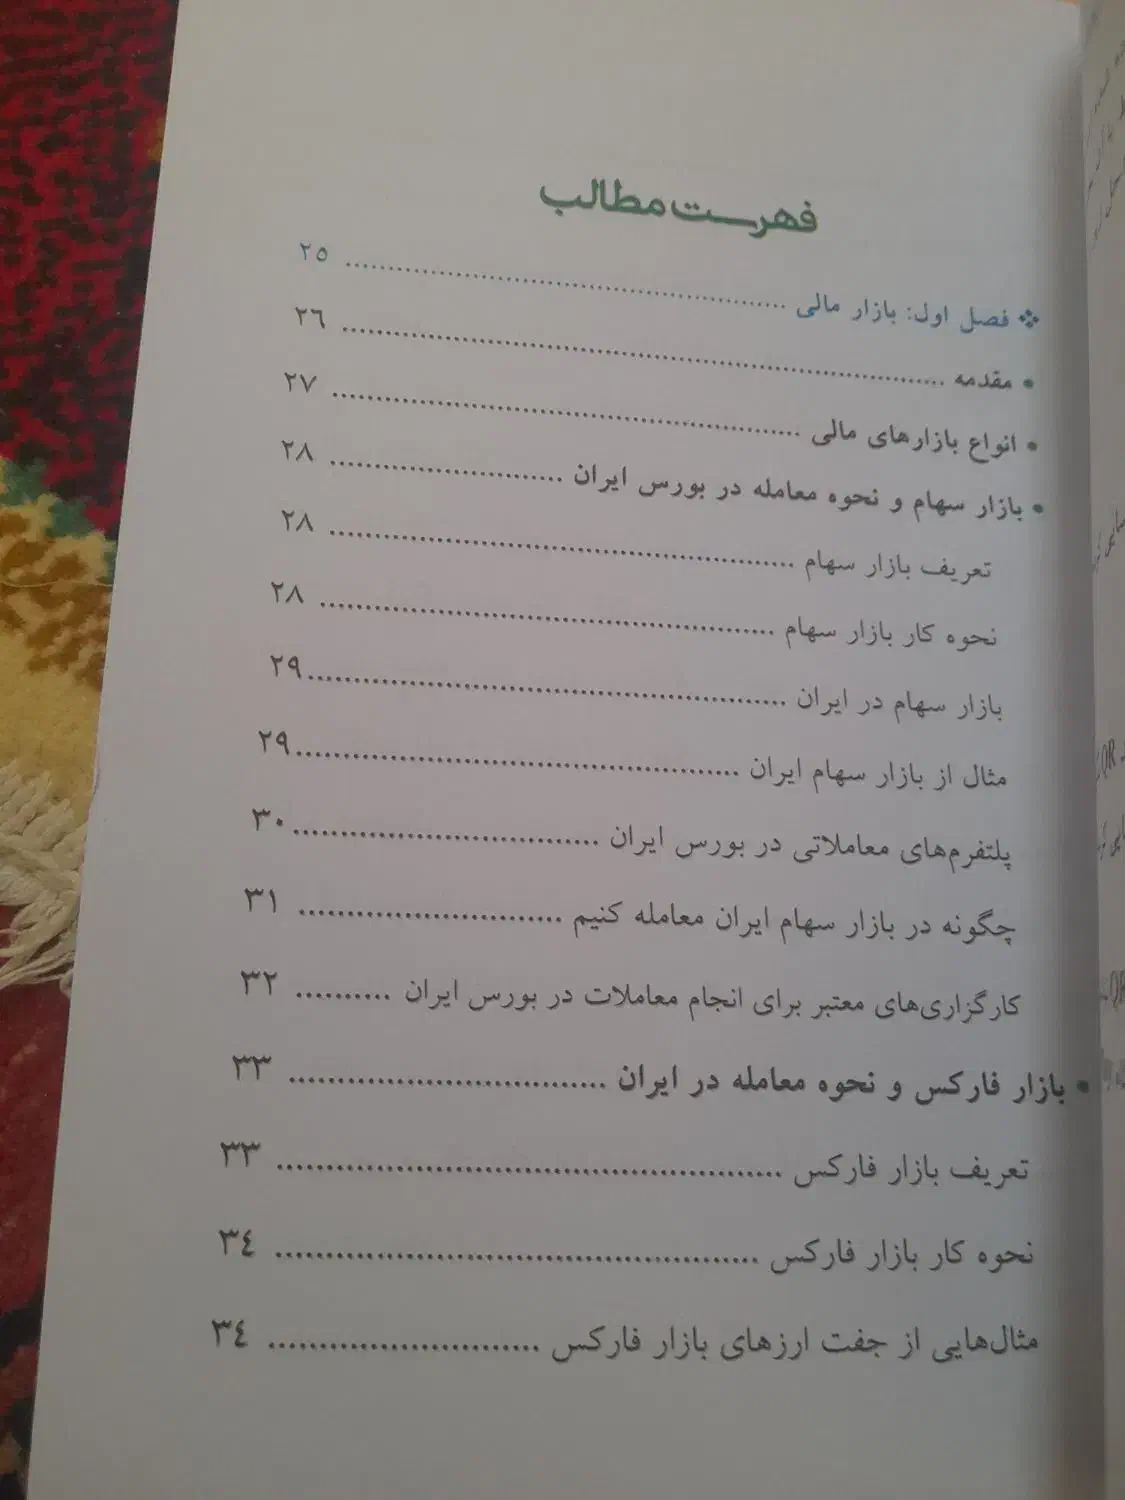 فهرست مطالب
❖ فصل اول: بازار مالی ........ ۲۵
• مقدمه ........ ۲۶
• انواع بازارهای مالی ........ ۲۷
• بازار سهام و نحوه معامله در بورس ایران ........ ۲۸
تعریف بازار سهام ........ ۲۸
نحوه کار بازار سهام ........ ۲۸
بازار سهام در ایران ........ ۲۹
مثال از بازار سهام ایران ........ ۲۹
پلتفرم‌های معاملاتی در بورس ایران ........ ۳۰
چگونه در بازار سهام ایران معامله کنیم ........ ۳۱
کارگزاری‌های معتبر برای انجام معاملات در بورس ایران ........ ۳۲
• بازار فارکس و نحوه معامله در ایران ........ ۳۳
تعریف بازار فارکس ........ ۳۳
نحوه کار بازار فارکس ........ ۳٤
مثال‌هایی از جفت ارزهای بازار فارکس ........ ۳٤
QR